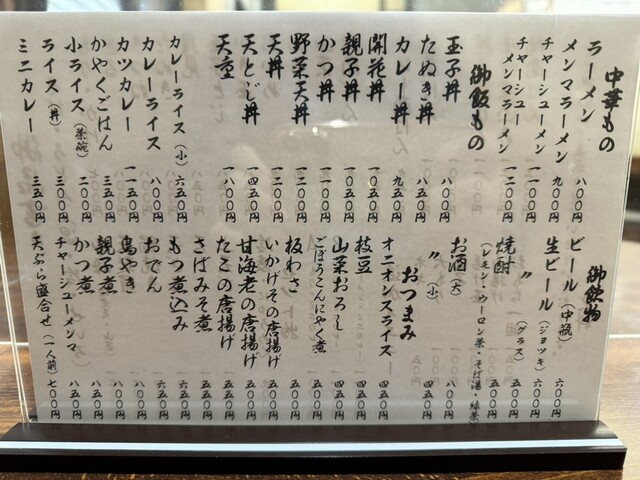 中華もの
ラーメン 八〇〇円
メンマラーメン 九〇〇円
チャーシューメン 一一〇〇円
チャーシュー
メンマラーメン 一二〇〇円
御飯もの
玉子丼 八〇〇円
たぬき丼 八五〇円
カレー丼 九五〇円
開花丼 一〇五〇円
親子丼 一〇五〇円
かつ丼 一一〇〇円
野菜天丼 一二〇〇円
天丼 一二〇〇円
天とじ丼 一四五〇円
天重 一八〇〇円
カレーライス(小) 六五〇円
カレーライス 八〇〇円
カツカレー 一一五〇円
かやくごはん 三五〇円
小ライス(茶碗) 二〇〇円
ライス(丼) 三〇〇円
ミニカレー 三五〇円
御飲物
ビール(中瓶) 六〇〇円
生ビール(ジョッキ) 六〇〇円
〃(グラス) 五〇〇円
焼酎 五〇〇円
(レモン・ウーロン茶・そば湯・緑茶)
お酒(大) 八〇〇円
〃(小) 四五〇円
おつまみ
オニオンスライス 四五〇円
枝豆 四五〇円
山菜おろし 四五〇円
ごぼうこんにゃく煮 四五〇円
板わさ 五五〇円
いかげその唐揚げ 五五〇円
甘海老の唐揚げ 五五〇円
たこの唐揚げ 五五〇円
さばみそ煮 五五〇円
もつ煮込み 六五〇円
おでん 六五〇円
鳥やき 八〇〇円
親子煮 八〇〇円
かつ煮 八五〇円
チャーシューメンマ 八五〇円
天ぷら盛合せ(一人前) 七〇〇円